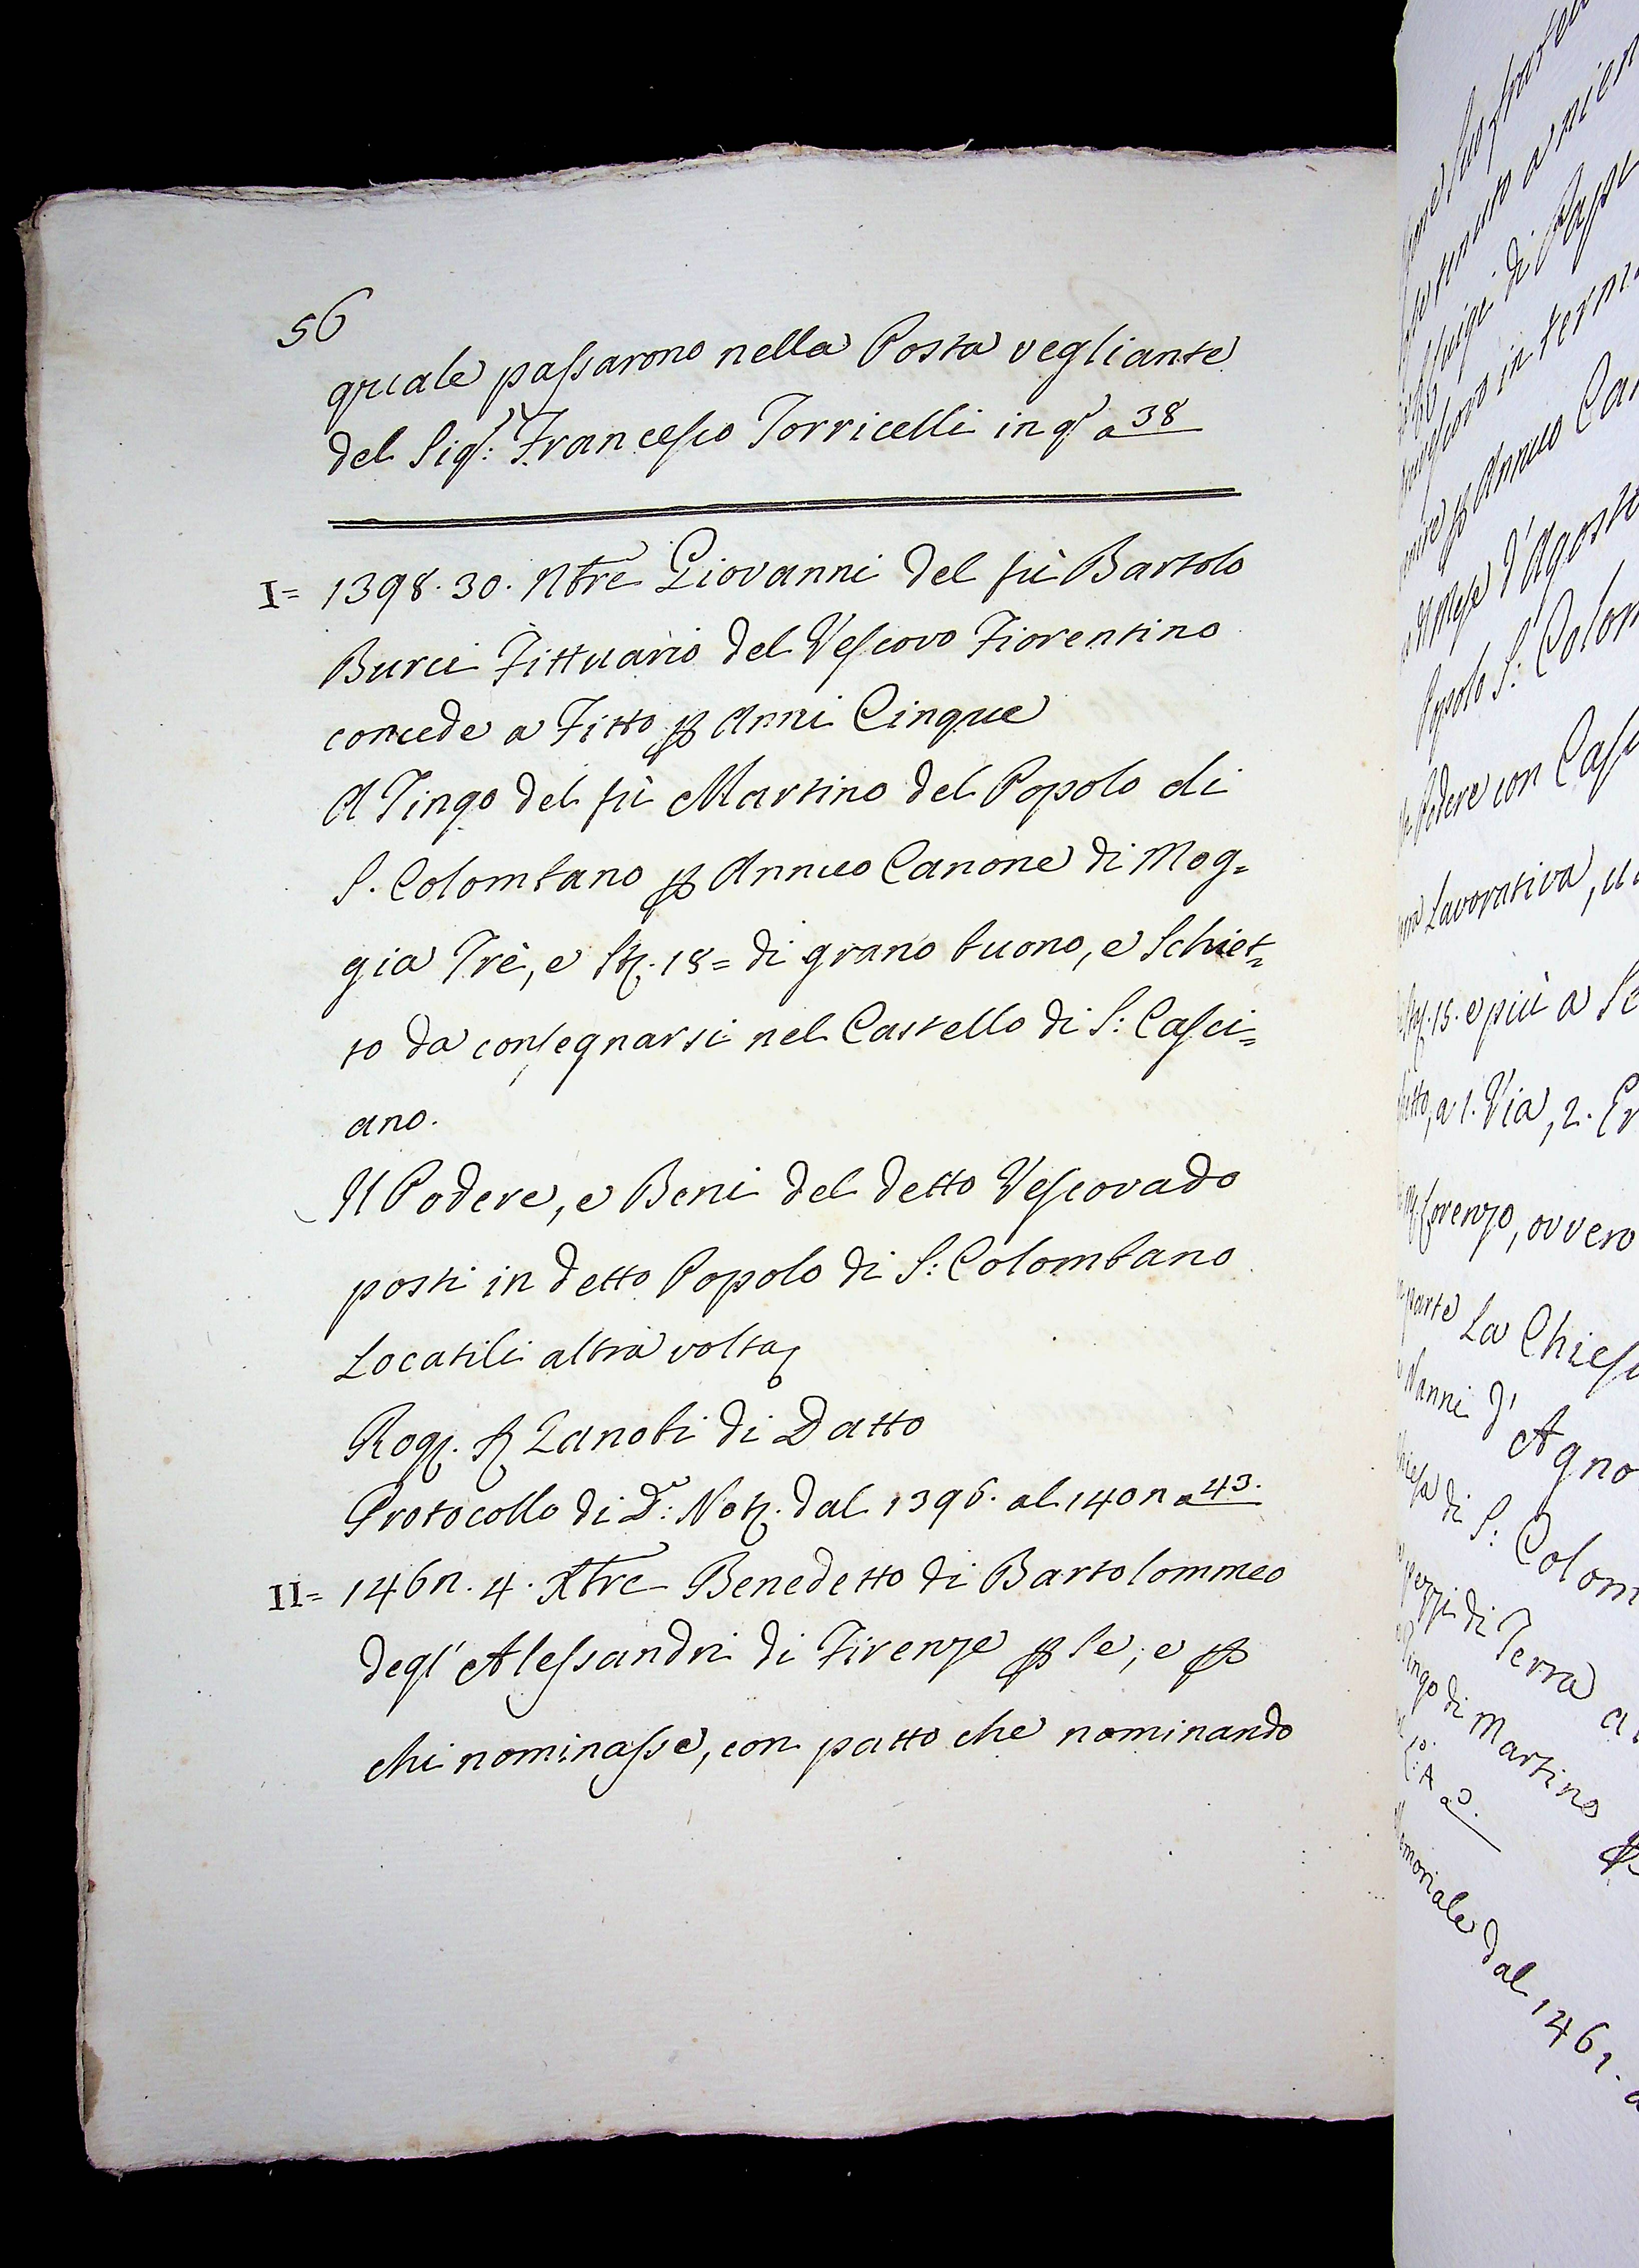 56
quale passarono nella Posta vegliante
del Sig.r Francesco Torricelli in q.o a 38
I= 1398. 30. Nbre Giovanni del fù Bartolo
Burci Fittuario del Vescovo Fiorentino
concede a Fitto p Anni Cinque
A Tingo del fù Martino del Popolo di
S. Colombano p Annuo Canone di Mog=
gia Trè, e St. 18= di grano buono, e Schiet=
to da consegnarsi nel Castello di S: Casci=
ano.
Il Podere, e Beni del detto Vescovado
posti in detto Popolo di S: Colombano
Locatili altra volta
Rog. S. Zanobi di Datto
Protocollo di D.o: Not. dal 1396. al 140n a 43.
II= 146n. 4. Xbre Benedetto di Bartolommeo
degl' Alessandri di Firenze p se, e p
chi nominasse, con patto che nominando
a nien
Luigi di
in termi
Annuo Ca
Mese d'Agosto
Popolo S: Colom
Podere con Cas
Lavorativa, u
15. e più a S
a 1. Via, 2. Er
Lorenzo, ovvero
parte La Chies
Nanni d' Agno
di S: Colom
pezzi di Terra a
Tingo di Martino
Memoriale dal 1461.